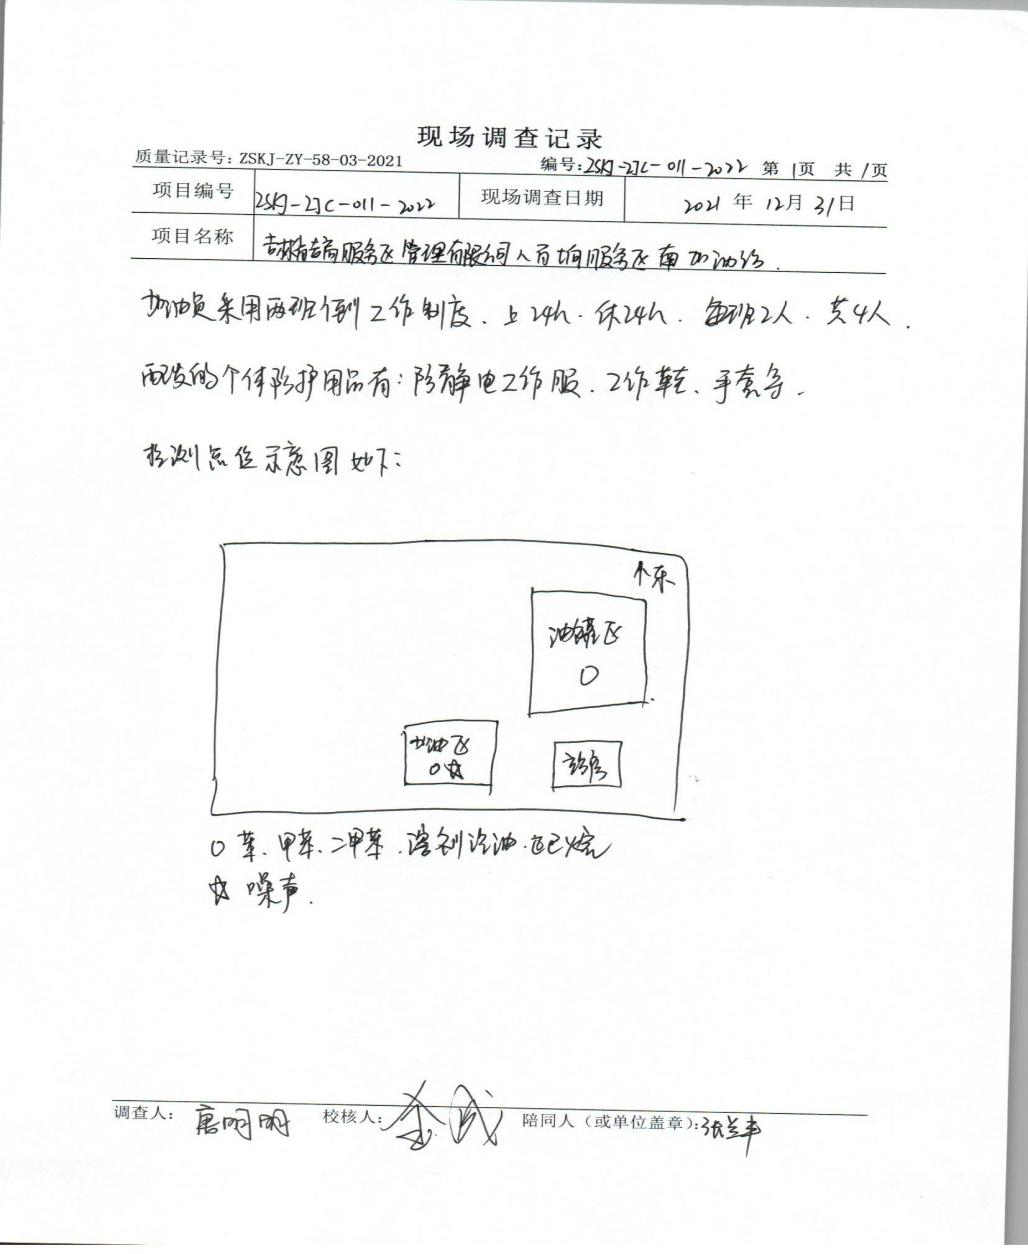 现场调查记录
质量记录号：ZSKJ-ZY-58-03-2021 编号：ZSKJ-ZJC-011-2022 第1页 共1页
项目编号 ZSKJ-ZJC-011-2022 现场调查日期 2021年12月31日
项目名称 吉林省吉高服务区管理有限公司 服务区南加油站.
加油员采用两班倒工作制度、上24h.休24h.每班2人.共4人.
配发的个体防护用品有：防静电工作服、工作鞋、手套等.
检测点位示意图如下：
个东
油罐区
○
加油区
○☆
站房
○ 苯、甲苯、二甲苯.溶剂汽油.正己烷
☆ 噪声.
调查人：唐明明 校核人： 陪同人（或单位盖章）：张兰丰